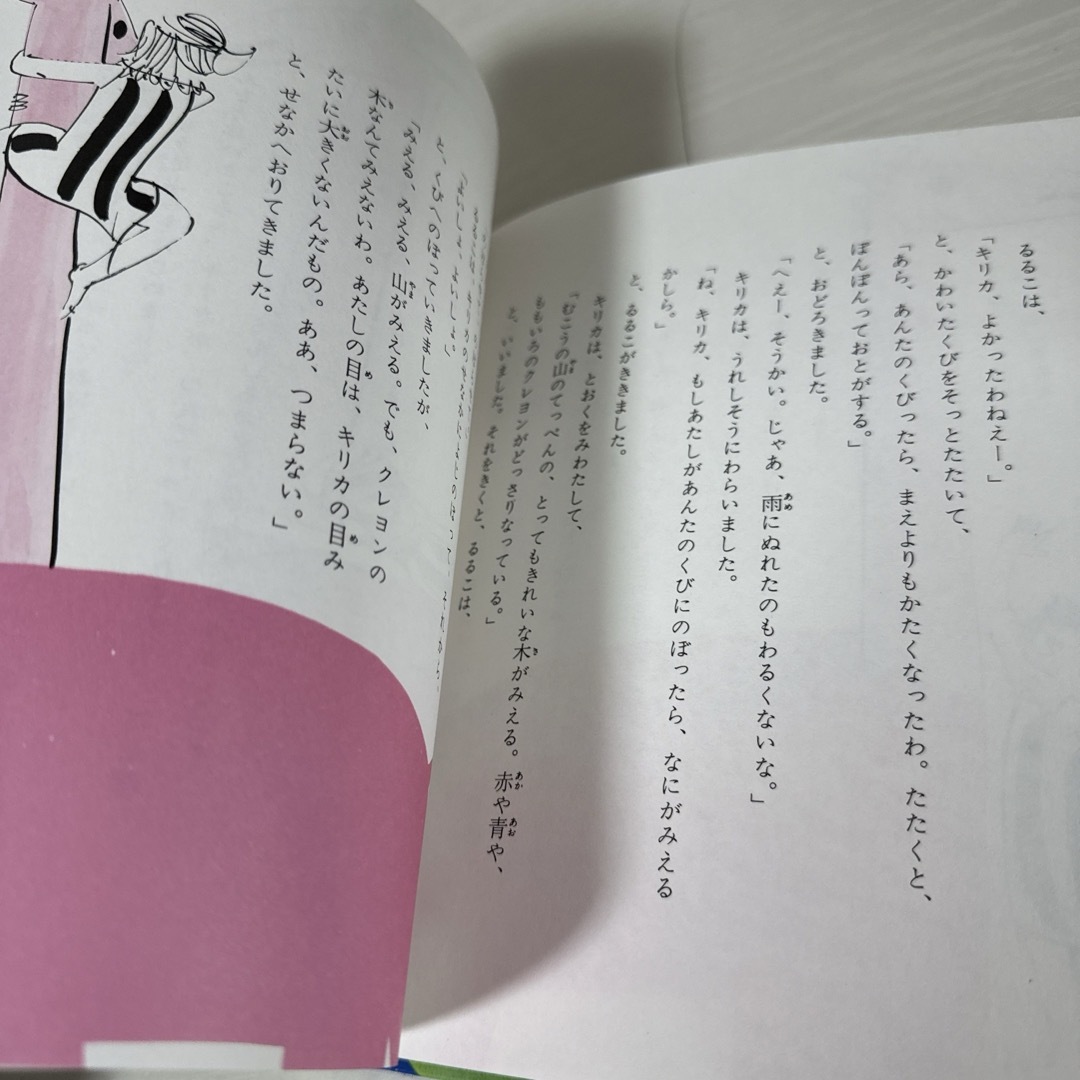 るるこは、
「キリカ、よかったわねえー。」
と、かわいたくびをそっとたたいて、
「あら、あんたのくびったら、まえよりもかたくなったわ。たたくと、
ぽんぽんっておとがする。」
と、おどろきました。
「へえー、そうかい。じゃあ、雨にぬれたのもわるくないな。」
キリカは、うれしそうにわらいました。
「ね、キリカ、もしあたしがあんたのくびにのぼったら、なにがみえる
かしら。」
と、るるこがききました。
キリカは、とおくをみわたして、
「むこうの山のてっぺんの、とってもきれいな木がみえる。赤や青や、
ももいろのクレヨンがどっさりなっている。」
と、いいました。それをきくと、るるこは、
「よいしょ、よいしょ。」
と、くびへのぼっていきましたが、
「みえる、みえる、山がみえる。でも、クレヨンの
木なんてみえないわ。あたしの目は、キリカの目み
たいに大きくないんだもの。ああ、つまらない。」
と、せなかへおりてきました。